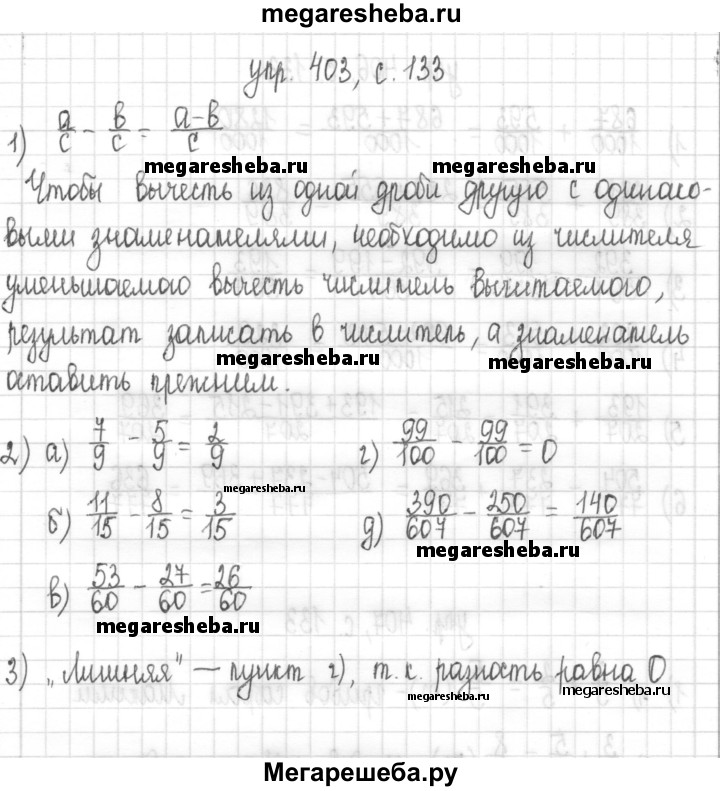 megaresheba.ru
упр. 403, с. 133
1) a/c - в/c = a-в/c
megaresheba.ru megaresheba.ru
Чтобы вычесть из одной дроби другую с одинако-
выми знаменателями, необходимо из числителя
уменьшаемого вычесть числитель вычитаемого,
результат записать в числитель, а знаменатель
megaresheba.ru megaresheba.ru
оставить прежним.
2) а) 7/9 - 5/9 = 2/9 г) 99/100 - 99/100 = 0
megaresheba.ru
б) 11/15 - 8/15 = 3/15 д) 390/607 - 250/607 = 140/607
megaresheba.ru
в) 53/60 - 27/60 = 26/60
megaresheba.ru
3) „Лишняя" — пункт г), т.к. разность равна 0
megaresheba.ru megaresheba.ru
Мегарешеба.ру